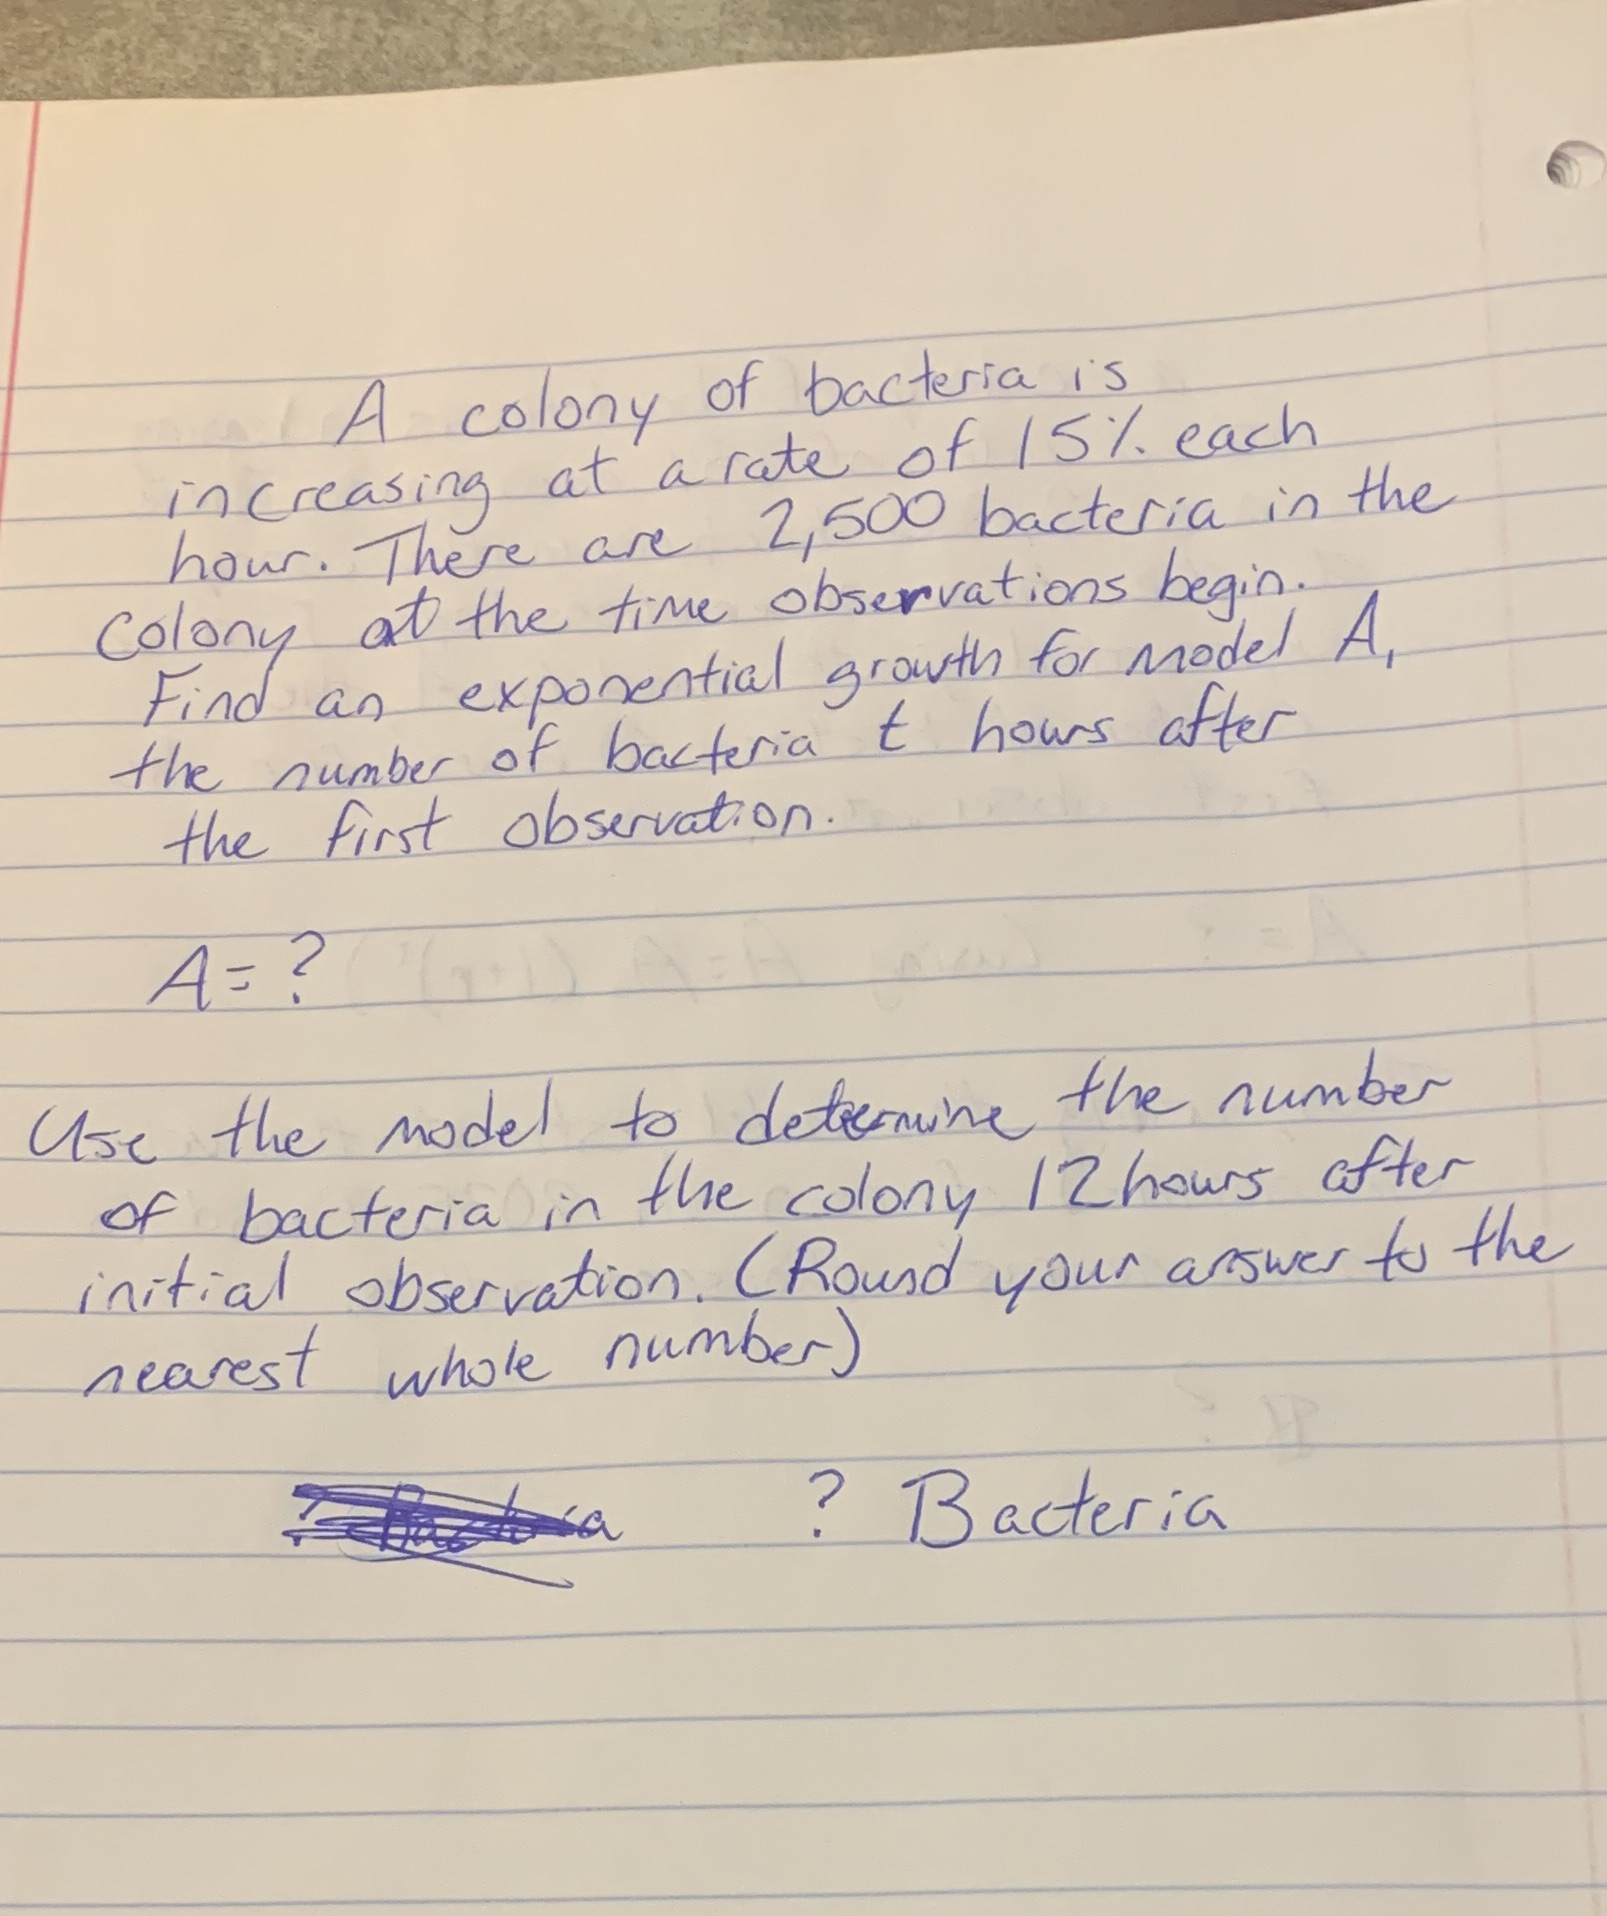 A colony of bacteria is
increasing at a rate of 15% each
hour. There are 2,500 bacteria in the
Colony at the time observations begin.
Find an exponential growth for model A,
the number of bacteria t hours after
the first observation.
A=?
Use the model to determine the number
of bacteria in the colony 12 hours after
initial observation. (Round your answer to the
nearest whole number)
? Bacteria